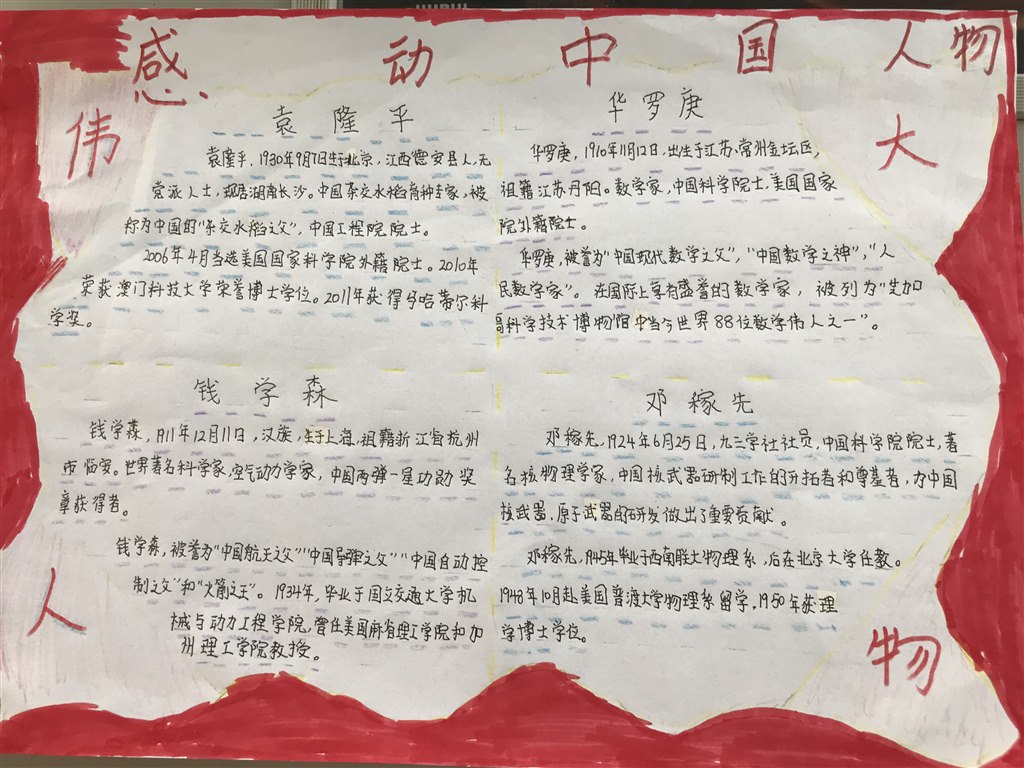 感动中国人物
伟
大
人
物
袁隆平
袁隆平，1930年9月7日生于北京，江西德安县人，无
党派人士，现居湖南长沙。中国杂交水稻育种专家，被
称为中国的“杂交水稻之父”，中国工程院院士。
2006年4月当选美国国家科学院外籍院士。2010年
荣获澳门科技大学荣誉博士学位。2011年获得马哈蒂尔科
学奖。
华罗庚
华罗庚，1910年11月12日，出生于江苏、常州金坛区，
祖籍江苏丹阳。数学家，中国科学院士，美国国家
院外籍院士。
华罗庚，被誉为“中国现代数学之父”，“中国数学之神”，“人
民数学家”。在国际上享有盛誉的数学家，被列为“芝加
哥科学技术博物馆中当今世界88位数学伟人之一”。
钱学森
钱学森，1911年12月11日，汉族，生于上海，祖籍浙江省杭州
市临安。世界著名科学家，空气动力学家，中国两弹一星功勋奖
章获得者。
钱学森，被誉为“中国航天之父”“中国导弹之父”“中国自动控
制之父”和“火箭之王”。1934年，毕业于国立交通大学机
械与动力工程学院，曾任美国麻省理工学院和加
州理工学院教授。
邓稼先
邓稼先，1924年6月25日，九三学社社员，中国科学院院士，著
名核物理学家，中国核武器研制工作的开拓者和奠基者，为中国
核武器、原子武器的研发做出了重要贡献。
邓稼先，1945年毕业于西南联大物理系，后在北京大学任教。
1948年10月赴美国普渡大学物理系留学，1950年获理
学博士学位。